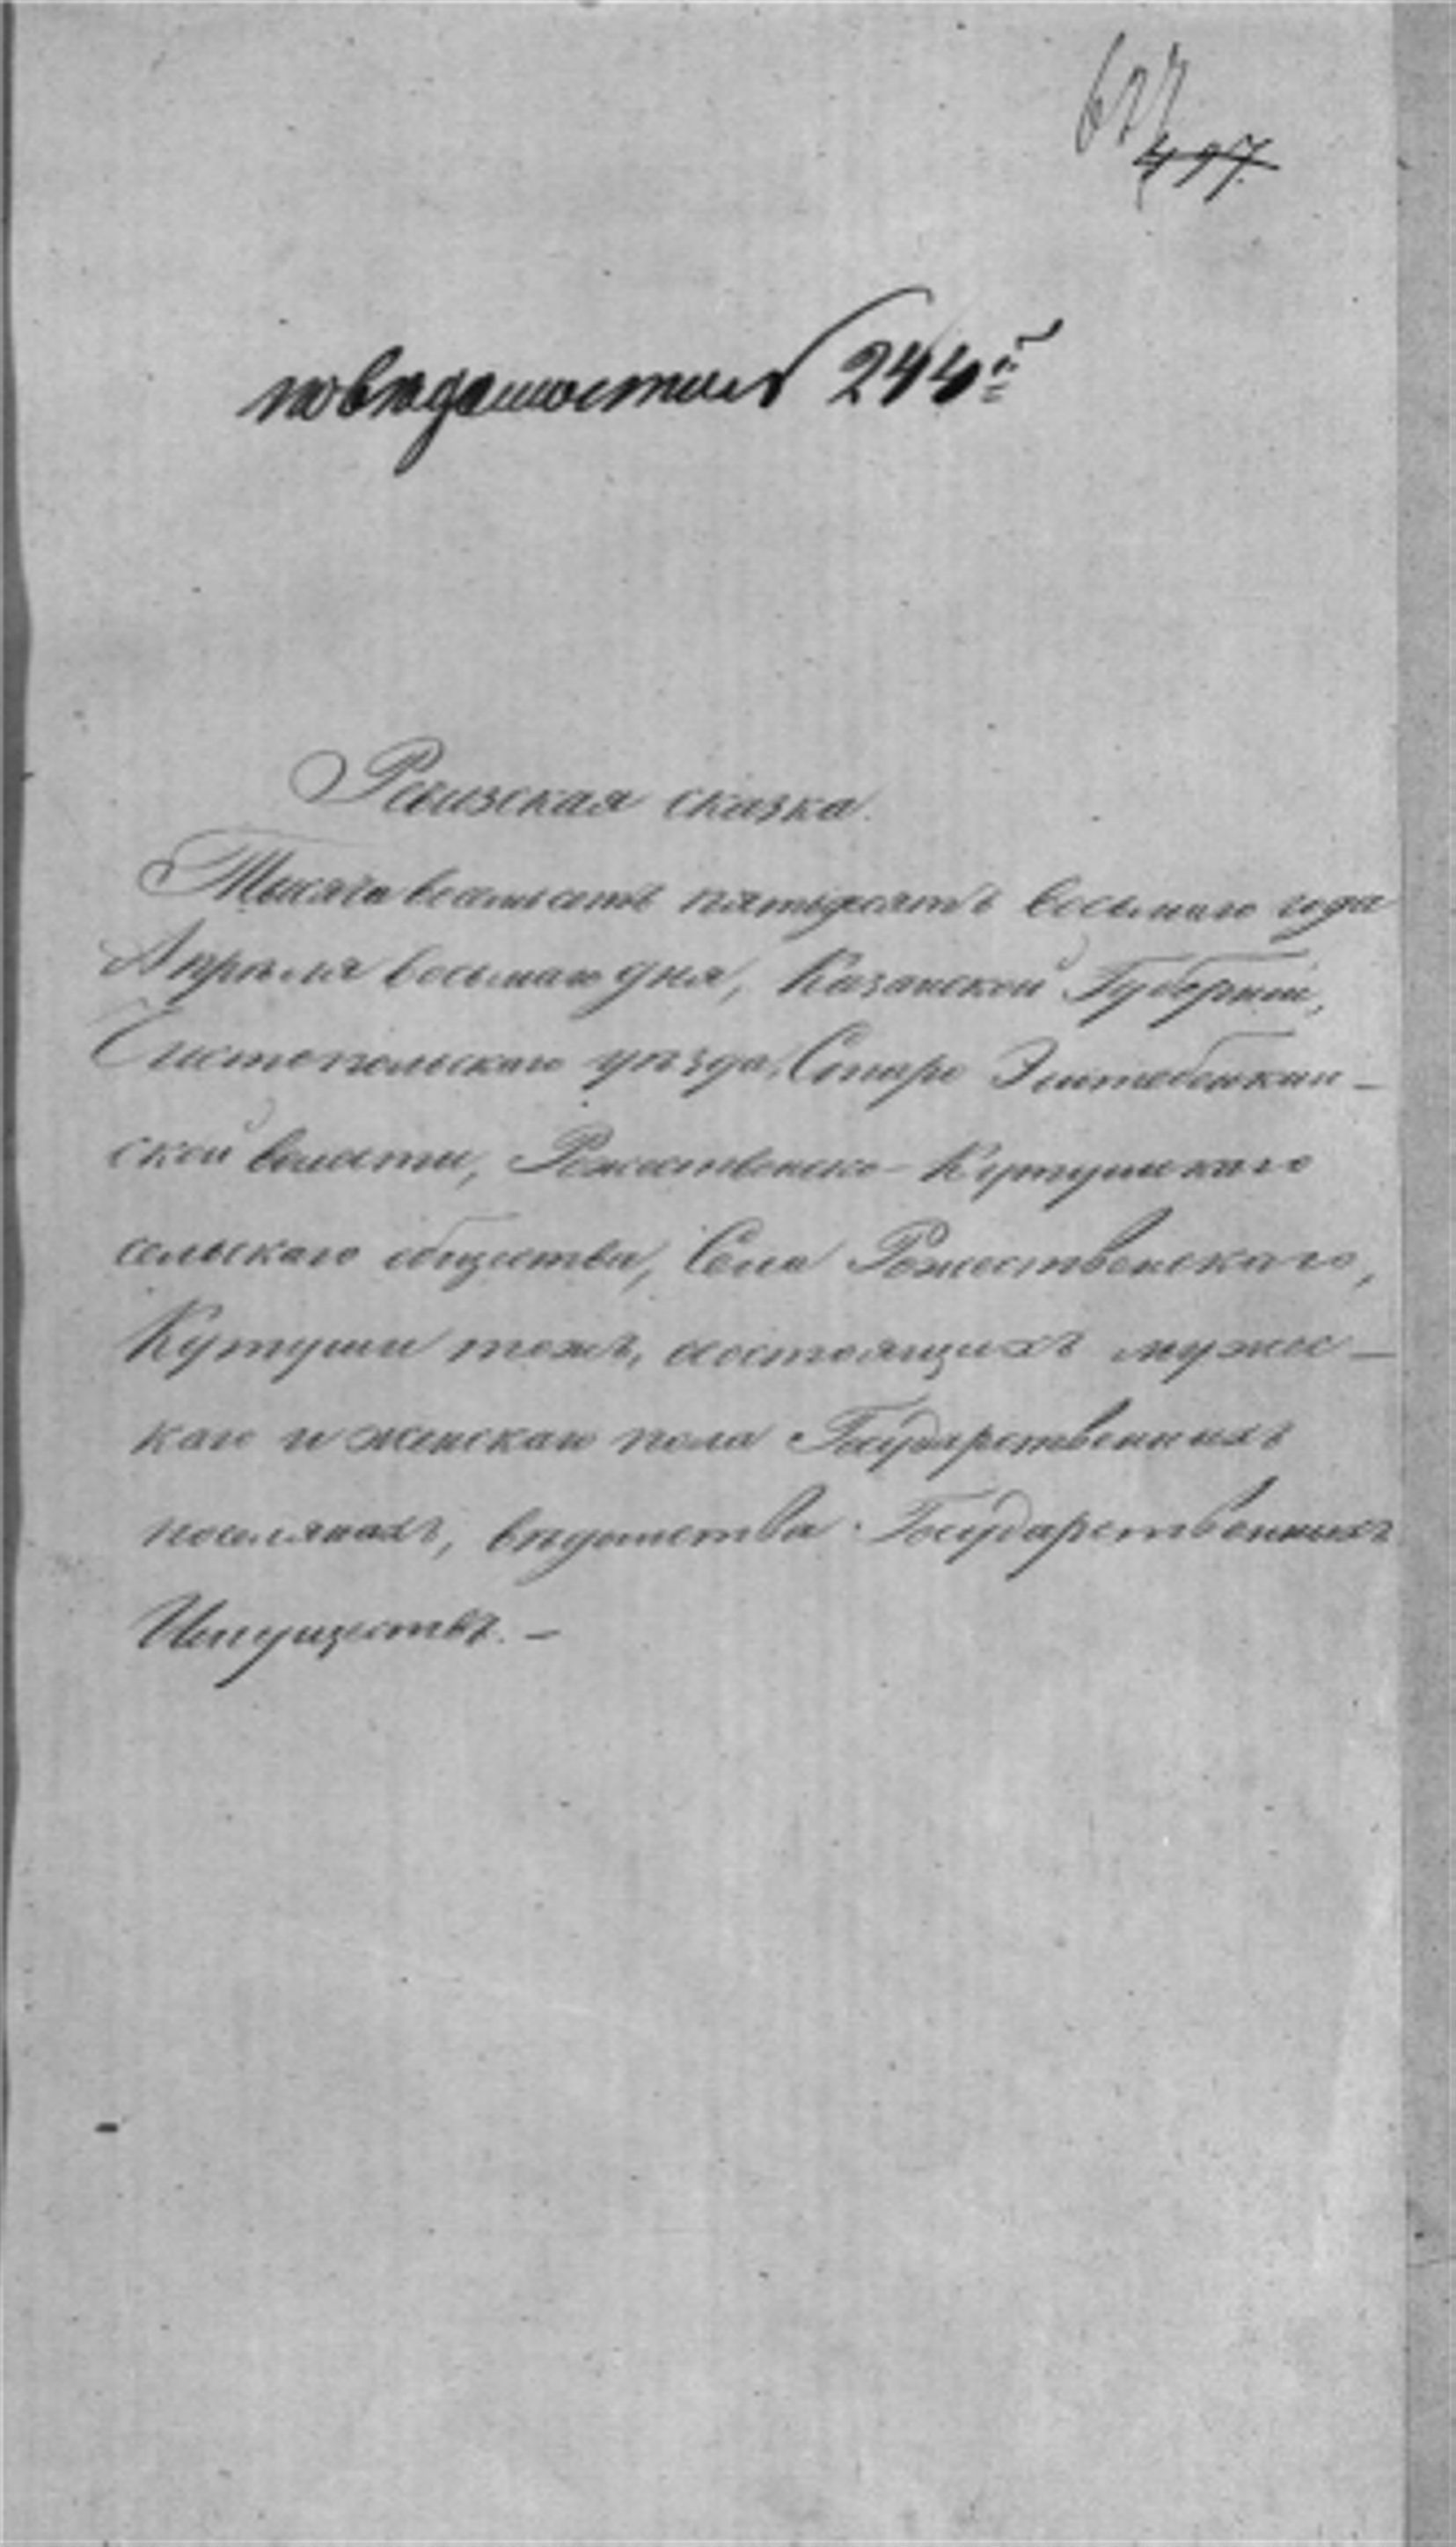 627
497.
по ведомости 244й
Ревизская сказка.
Тысяча восемьсотъ пятьдесятъ восьмаго года
Апрѣля восьмаго дня, Казанской Губерніи,
Чистопольскаго уѣзда, Старо Эштебенькин-
ской волости, Рожественско-Кутушскаго
сельскаго общества, Села Рожественскаго,
Кутуши тожъ, состоящихъ мужес-
каго и женскаго пола Государственныхъ
поселянахъ, вѣдомства Государственныхъ
Имуществъ. –